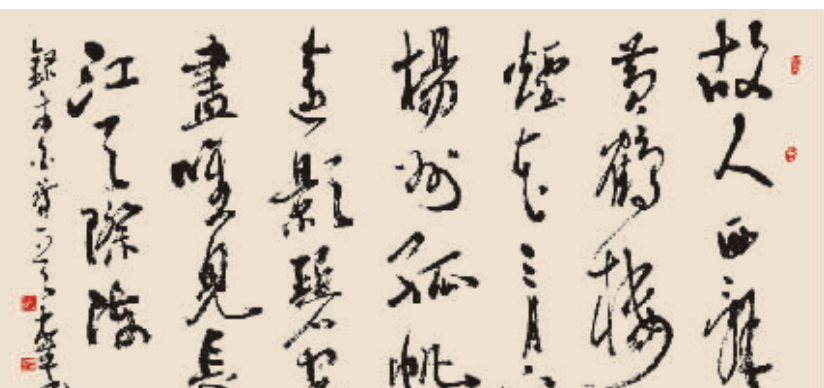 故人西辭
黃鶴樓
煙花三月下
楊州孤帆
遠影碧空
盡唯見長
江天際流
錄李白詩